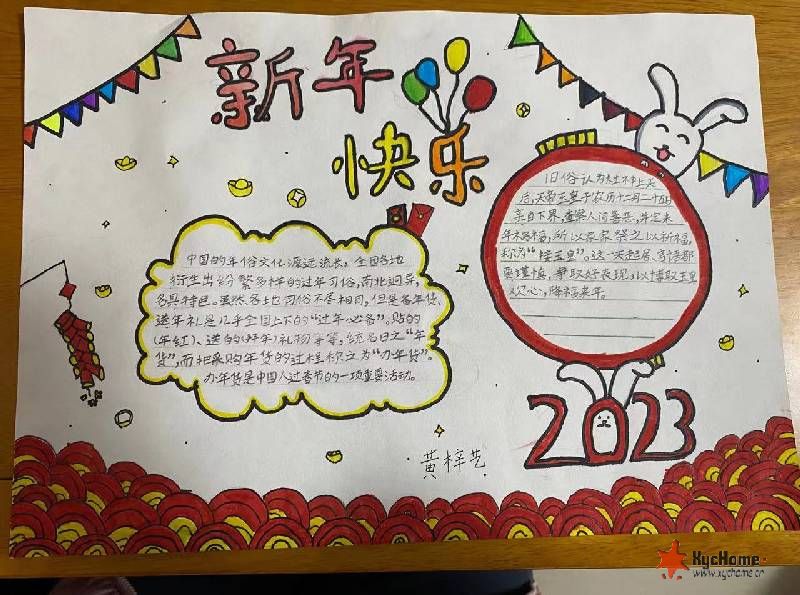 新年
快乐
中国的年俗文化源远流长，全国各地
衍生出纷繁多样的过年习俗，南北迥异，
各具特色。虽然各地习俗不尽相同，但是备年货、
送年礼是几乎全国上下的“过年必备”。贴的
(年红)、送的(拜年)礼物等等，统名曰之“年
货”，而把采购年货的过程称之为“办年货”。
办年货是中国人过春节的一项重要活动。
旧俗认为灶神上天
后，天帝玉皇于农历十二月二十五日
亲自下界，查察人间善恶，并定来
年祸福，所以家家祭之以祈福，
称为“接玉皇”。这一天起居、言语都
要谨慎，争取好表现，以博取玉皇
欢心，降福来年。
2023
黄梓艺
XycHome
www.xychome.cn